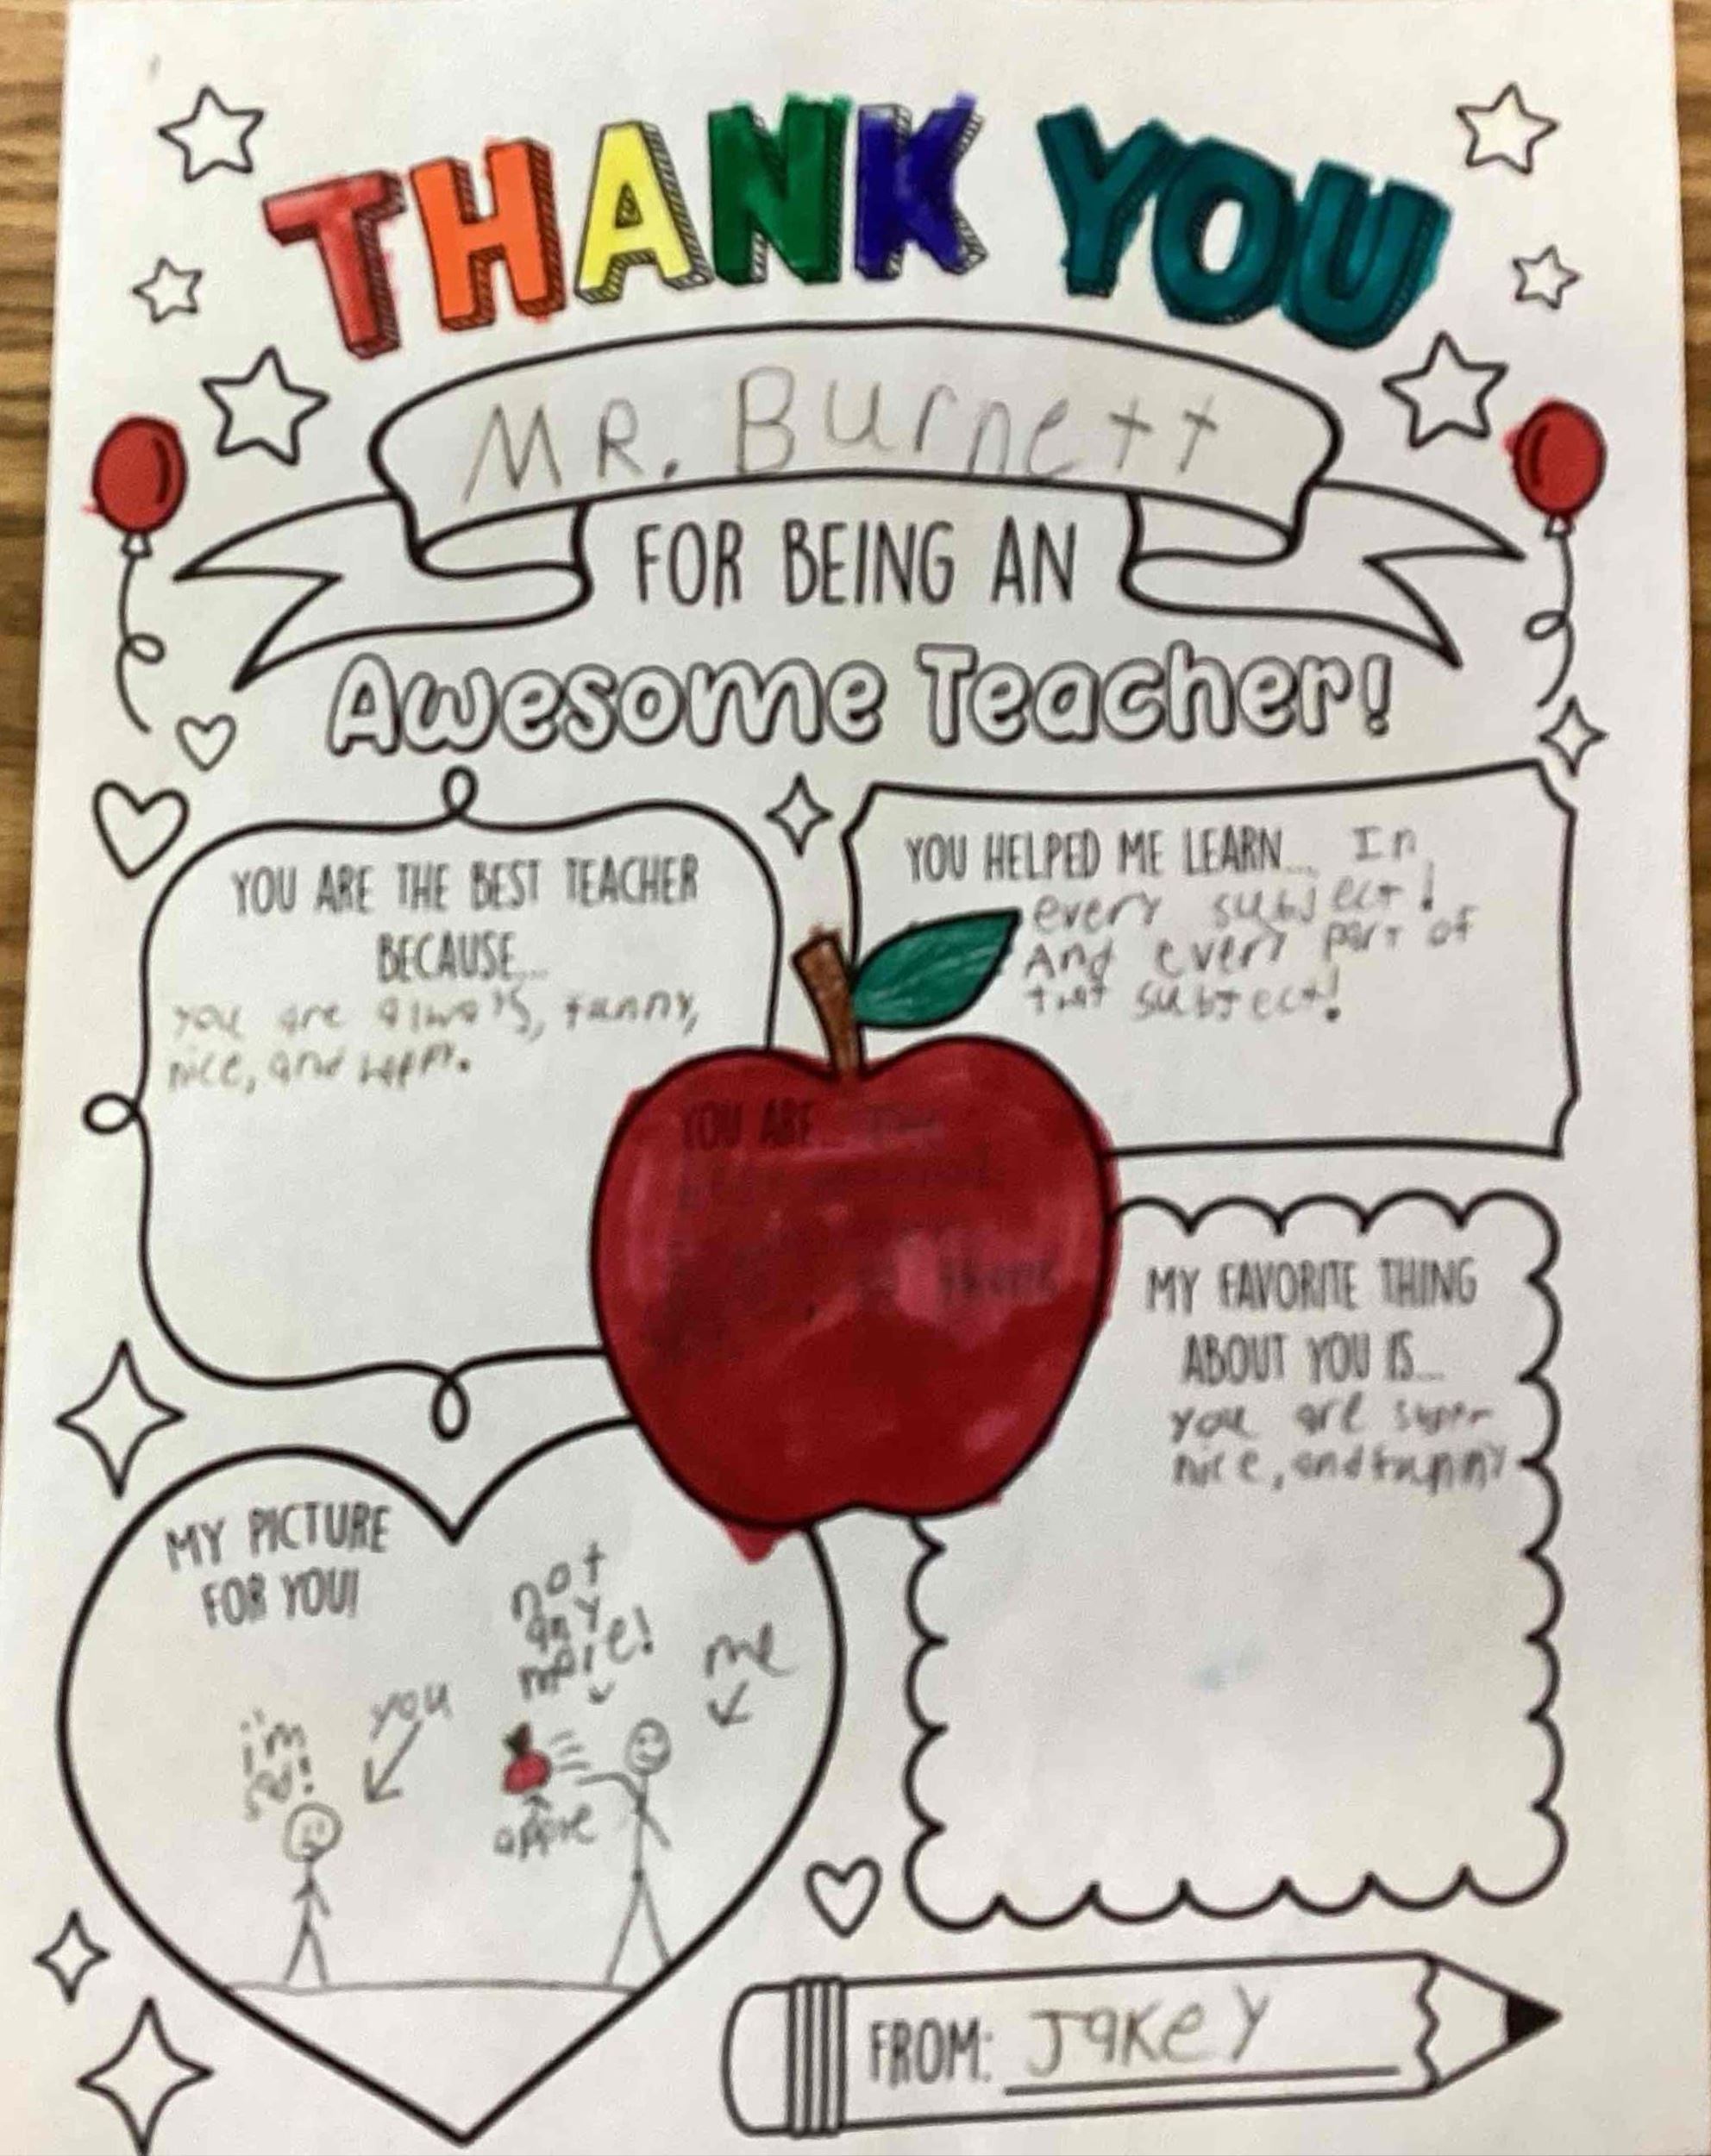 THANK YOU
MR. Burnett
FOR BEING AN
Awesome Teacher!
YOU ARE THE BEST TEACHER
BECAUSE...
you are always, funny,
nice, and happy.
YOU HELPED ME LEARN... In
every subject!
And every part of
that subject!
YOU ARE... 
MY FAVORITE THING
ABOUT YOU IS...
you are super
nice, and funny
MY PICTURE
FOR YOU!
not
any
more!
me
you
i'm
sad!
apple
FROM: Jakey